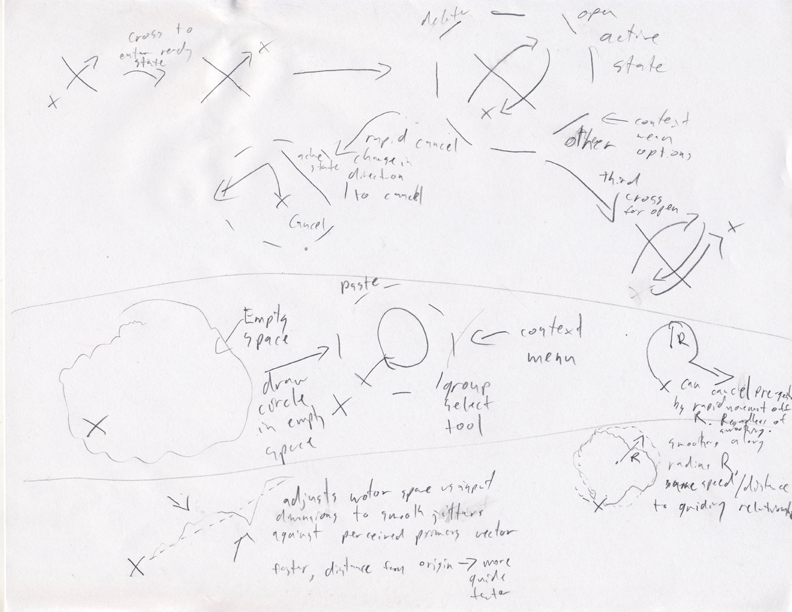 cross to
enter ready
state
delete
open
active
state
context
menu
options
other
rapid cancel
change in
direction
to cancel
active
state
Cancel
third
cross
for open
paste
Empty
space
draw
circle
in empty
space
context
menu
group
select
tool
R
can cancel
by rapid movement off
R. Regardless of
smoothing.
smoothing along
radius R,
same speed/distance
to guiding relationship
R
adjusts motor space using input
dimensions to smooth jitters
against perceived primary vector
faster, distance from origin → more
guide
factor